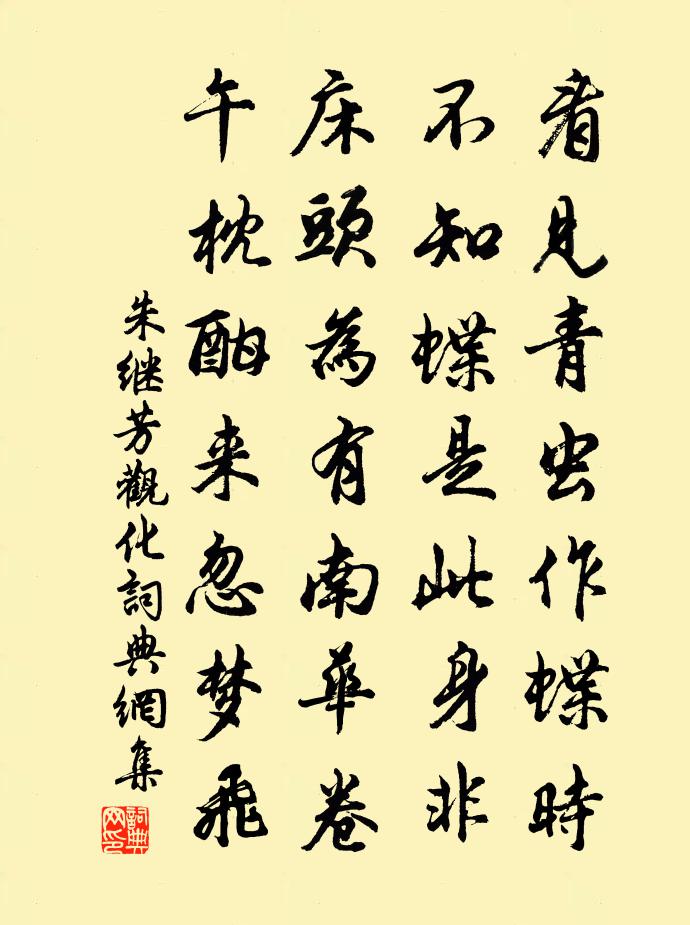 看見青虫作蝶時
不知蝶是此身非
床頭為有南華卷
午枕酣来忽梦飛
朱继芳觀化詞典網集
詞典网印